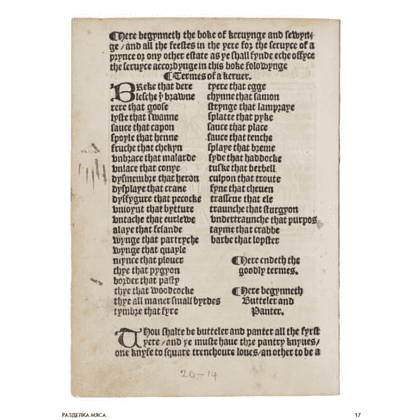 Here begynneth the boke of keruynge and sewyn-
ge / and all the feestes in the yere for the seruyce of a
prynce or ony other estate as ye shall fynde eche offyce
the seruyce accordynge in this boke folowynge
¶ Termes of a keruer.
BReke that dere
lesche þͭ brawne
rere that goose
lyfte that swanne
sauce that capon
spoyle that henne
fruche that chekyn
vnbrace that malarde
vnlace that conye
dysmembre that heron
dysplaye that crane
dysfygure that pecocke
vnioynt that bytture
vntache that curlewe
alaye that felande
wynge that partryche
wynge that quayle
mynce that plouer
thye that pygyon
border that pasty
thye that woodcocke
thye all maner small byrdes
tymbre that fyre
tyere that egge
chynne that samon
strynge that lampraye
splatte that pyke
sauce that place
sauce that tenche
splaye that breme
syde that haddocke
tuske that berbell
culpon that troute
fyne that cheuen
trassene that ele
traunche that sturgyon
vndertraunche that purpos
tayme that crabbe
barbe that lopster
¶ Here endeth the
goodly termes.
¶ Here begynneth
Butteler and
Panter.
THou shalte be butteler and panter all the fyrst
yere / and ye muste haue thre pantry knyues /
one knyfe to square trenchoure loues / an other to be a
20-14
РАЗДЕЛКА МЯСА
17